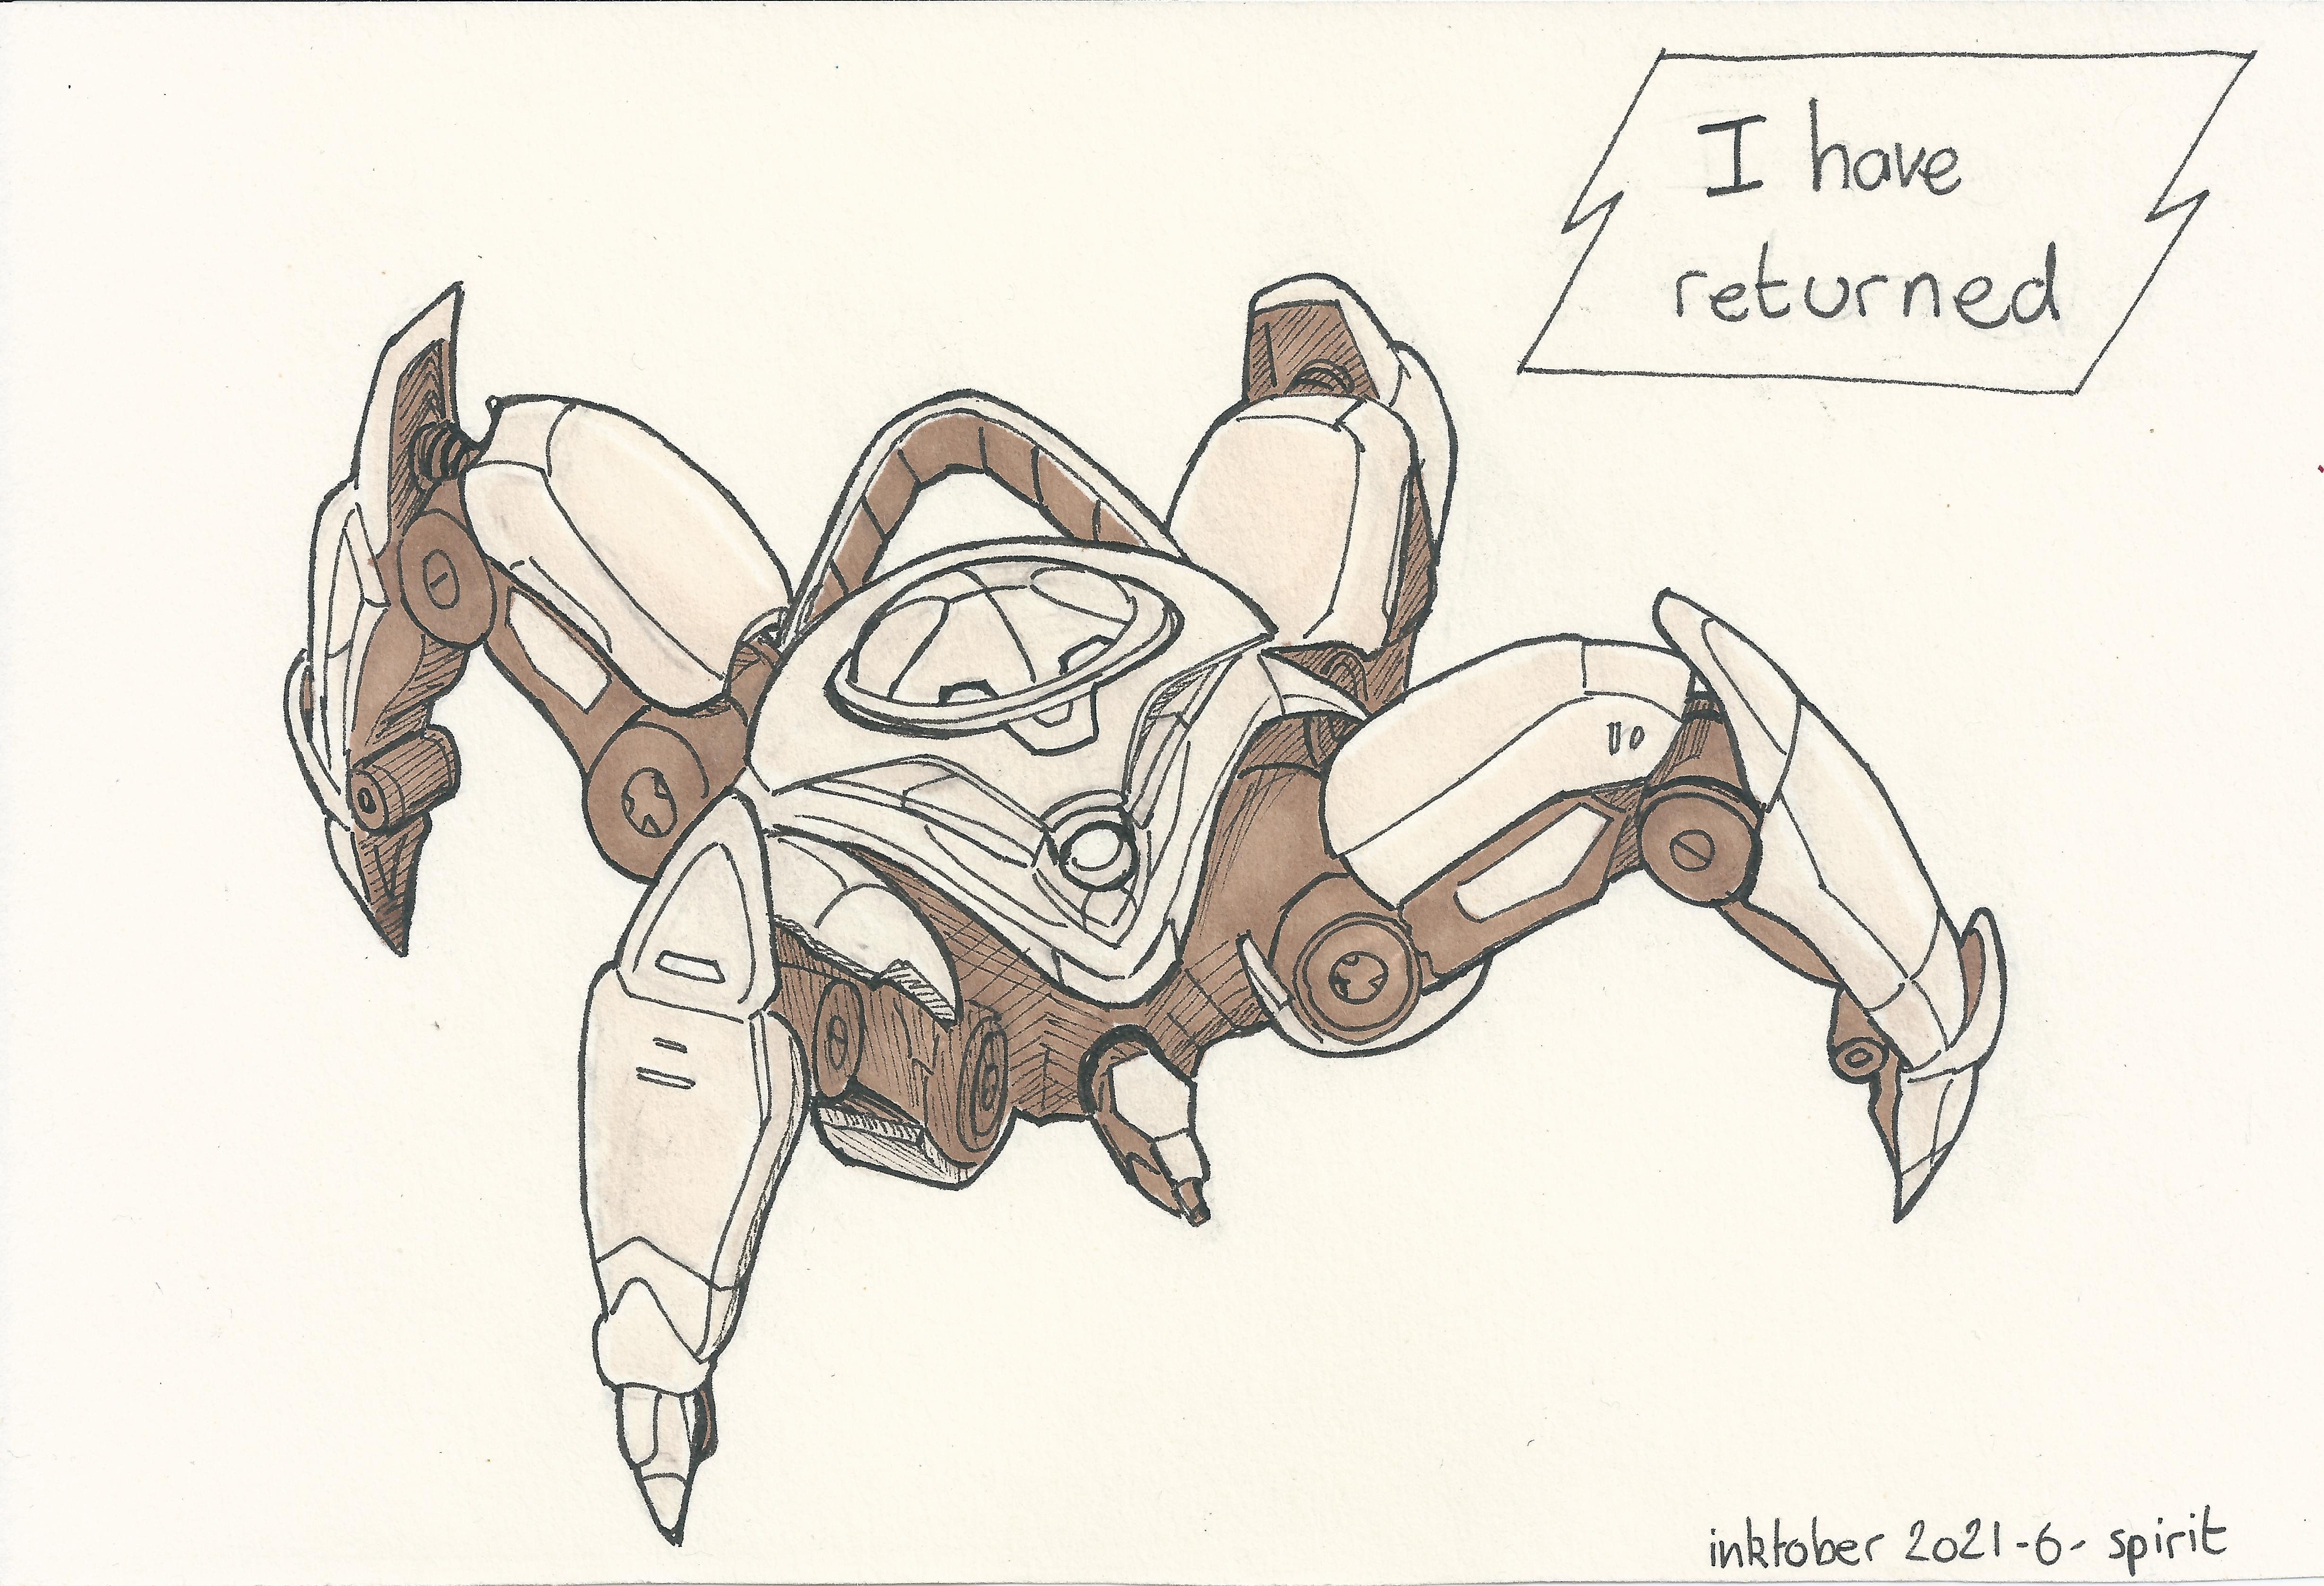 I have
returned
inktober 2021-6- spirit